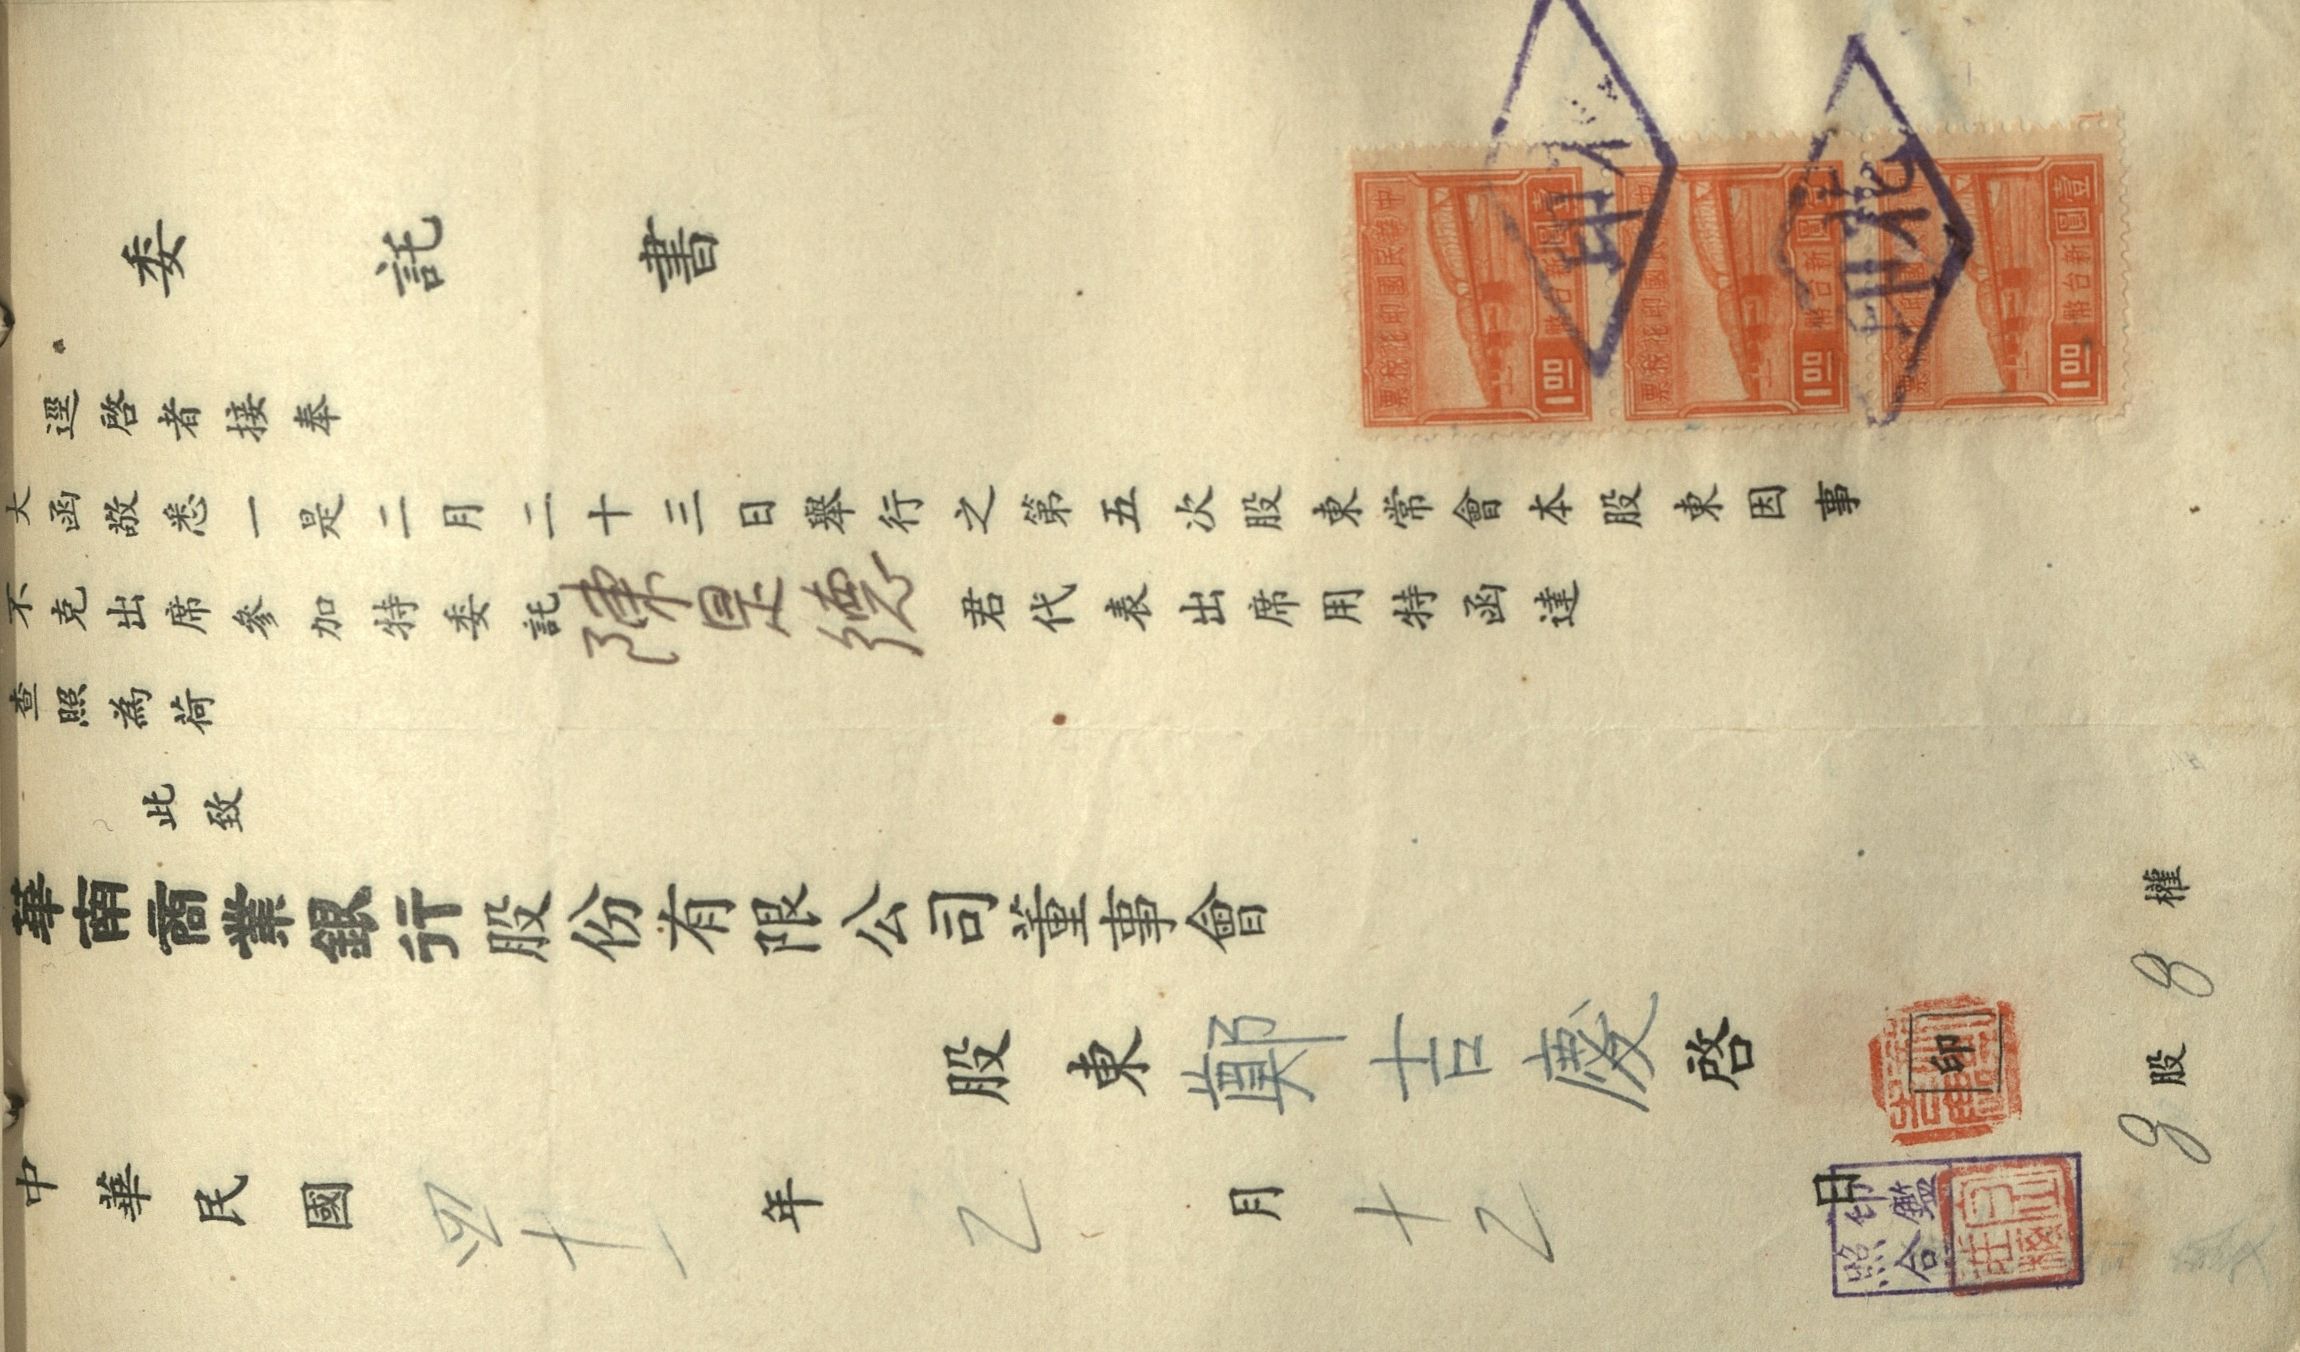 委託書
逕啓者接奉
大函敬悉一是二月二十三日舉行之第五次股東常會本股東因事
不克出席參加特委託陳是德君代表出席用特函達
查照為荷
此致
華南商業銀行股份有限公司董事會
股東鄭吉慶啓 印
中華民國四十一年乙月十乙日
8股8權
印鑑照合
中華民國印花稅票
壹圓新台幣
1.00
中華民國印花稅票
壹圓新台幣
1.00
壹圓新台幣
1.00